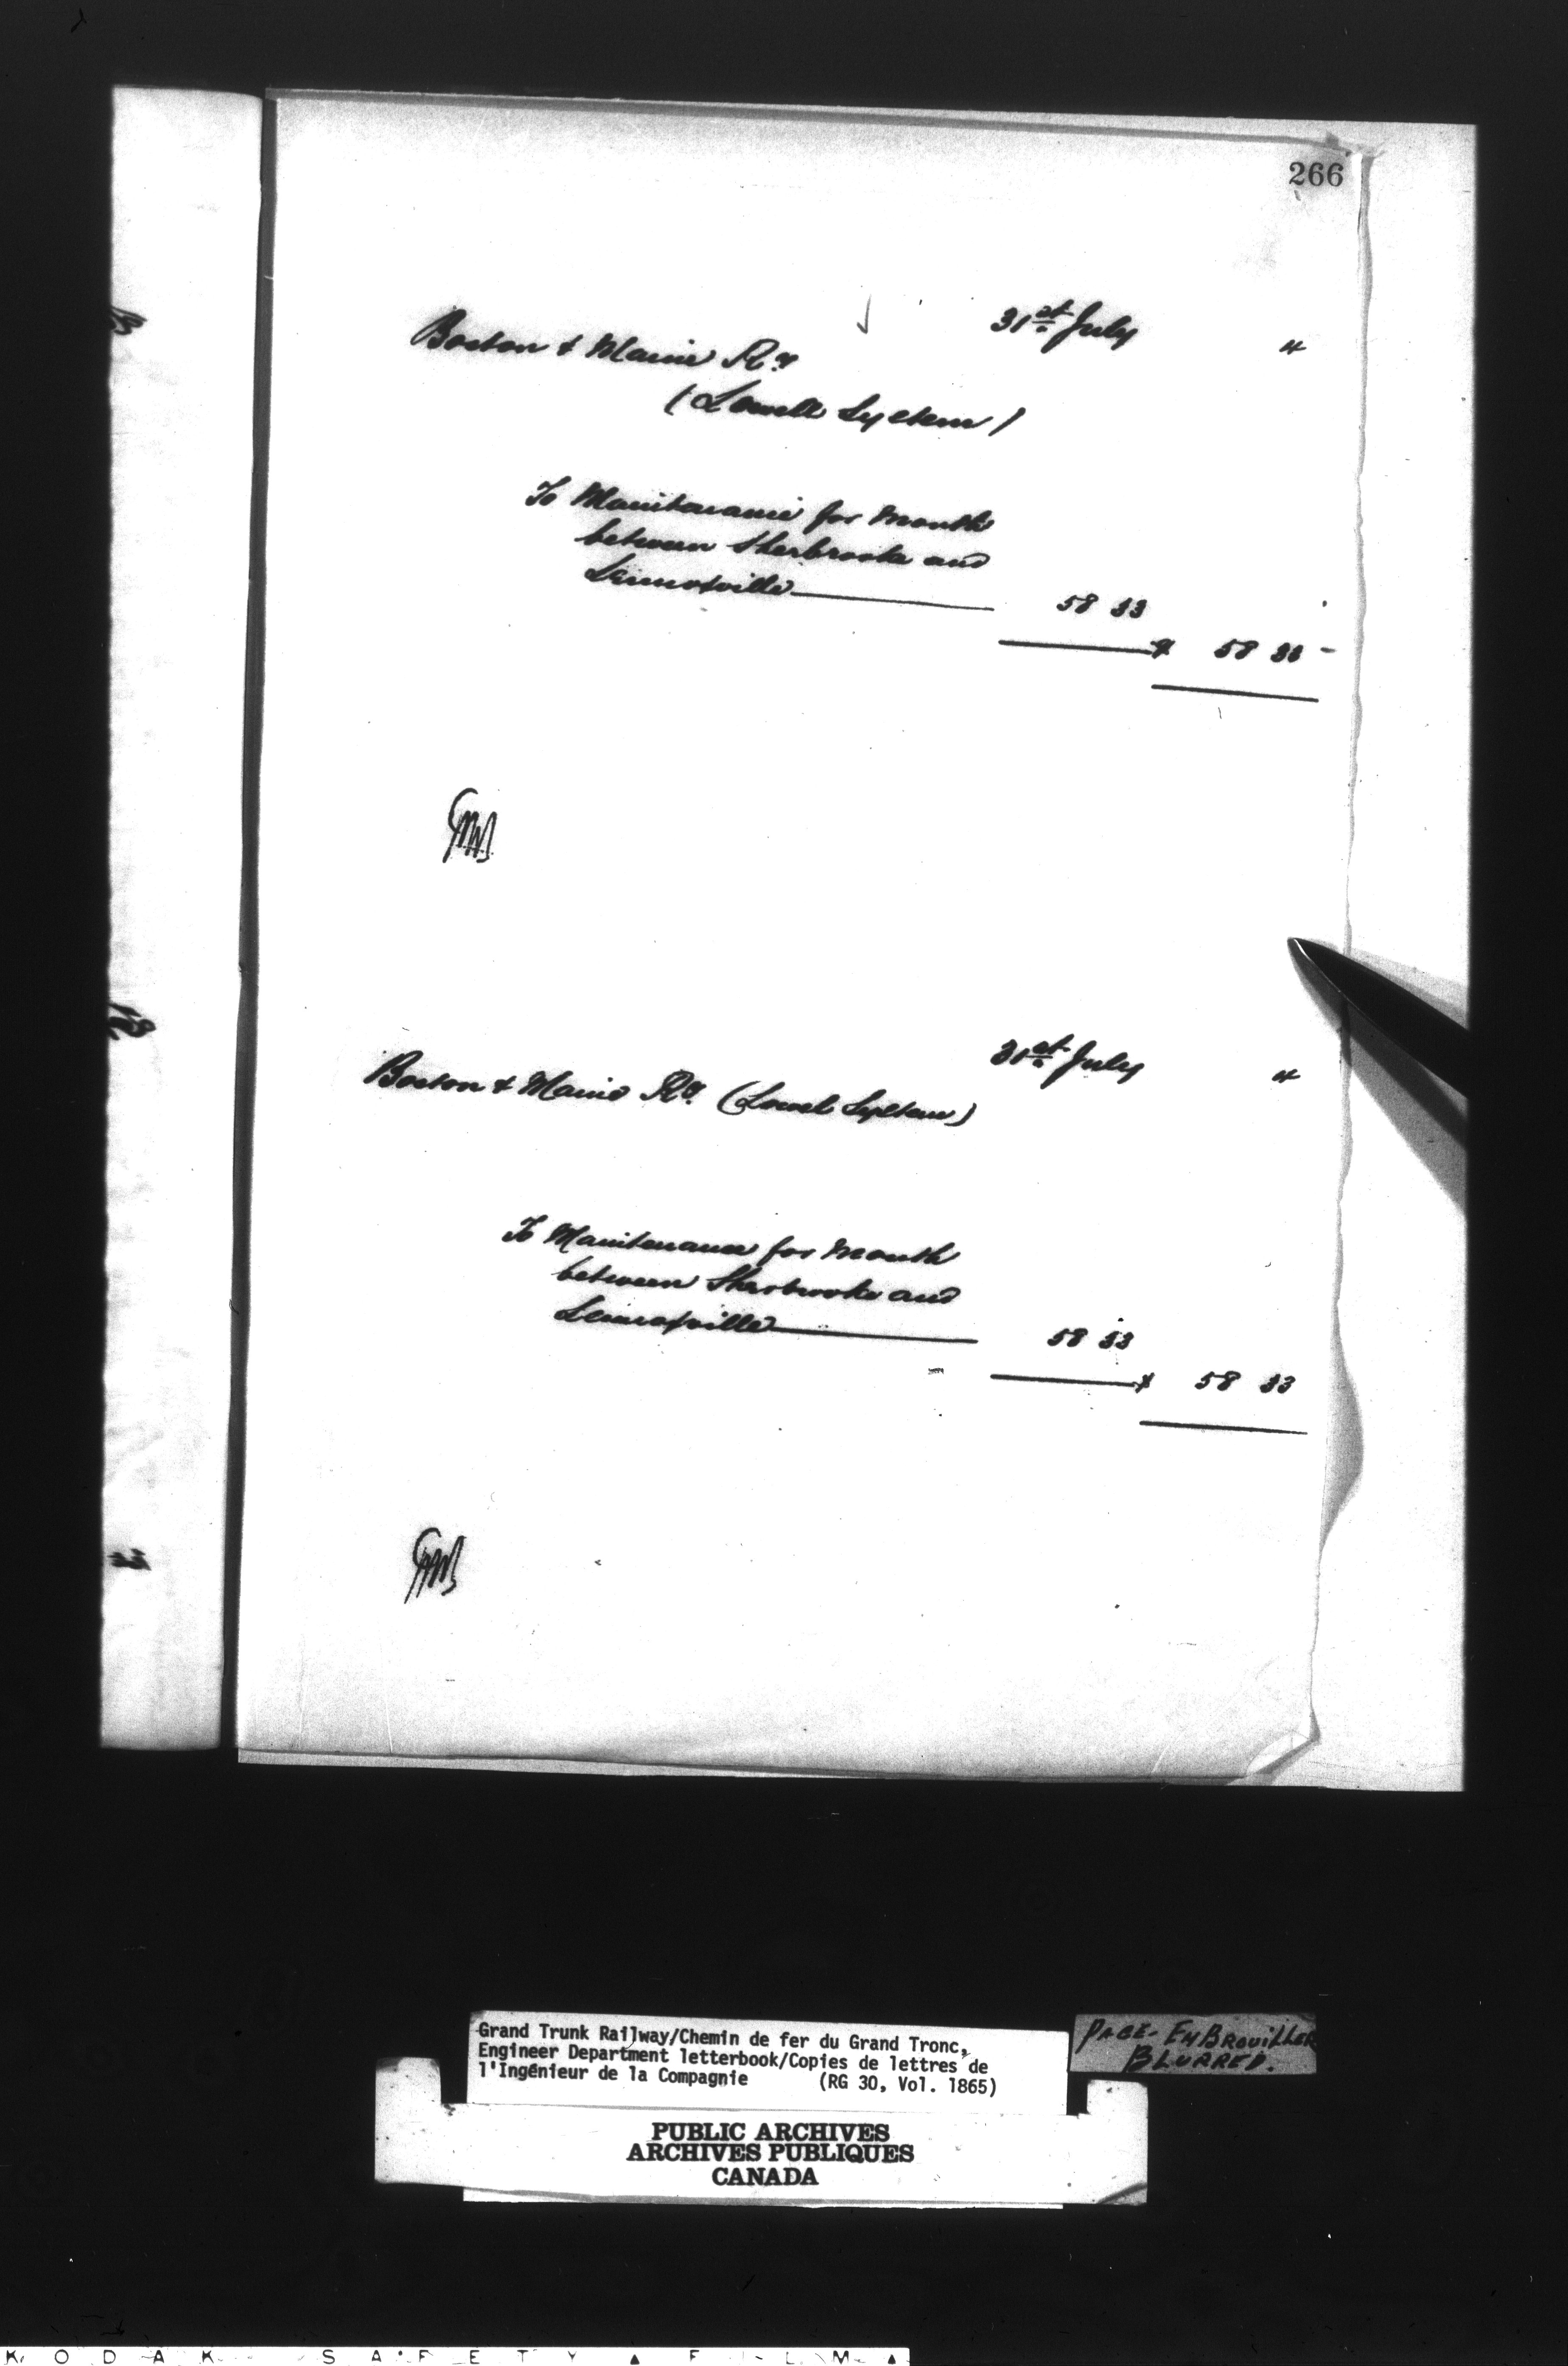 266
31st July 4
Boston & Maine Ry
(Lowell System)
To Maintenance for month
between Sherbrooke and
Lennoxville 58 33
$ 58 33
31st July 4
Boston & Maine Ry. (Lowel System)
To Maintenance for month
between Sherbrooke and
Lennoxville 58 33
$ 58 33
Grand Trunk Railway/Chemin de fer du Grand Tronc,
Engineer Department letterbook/Copies de lettres de
l'Ingénieur de la Compagnie (RG 30, Vol. 1865)
PAGE - EMBROUILLER
BLURRED.
PUBLIC ARCHIVES
ARCHIVES PUBLIQUES
CANADA
KODAK SAFETY FILM